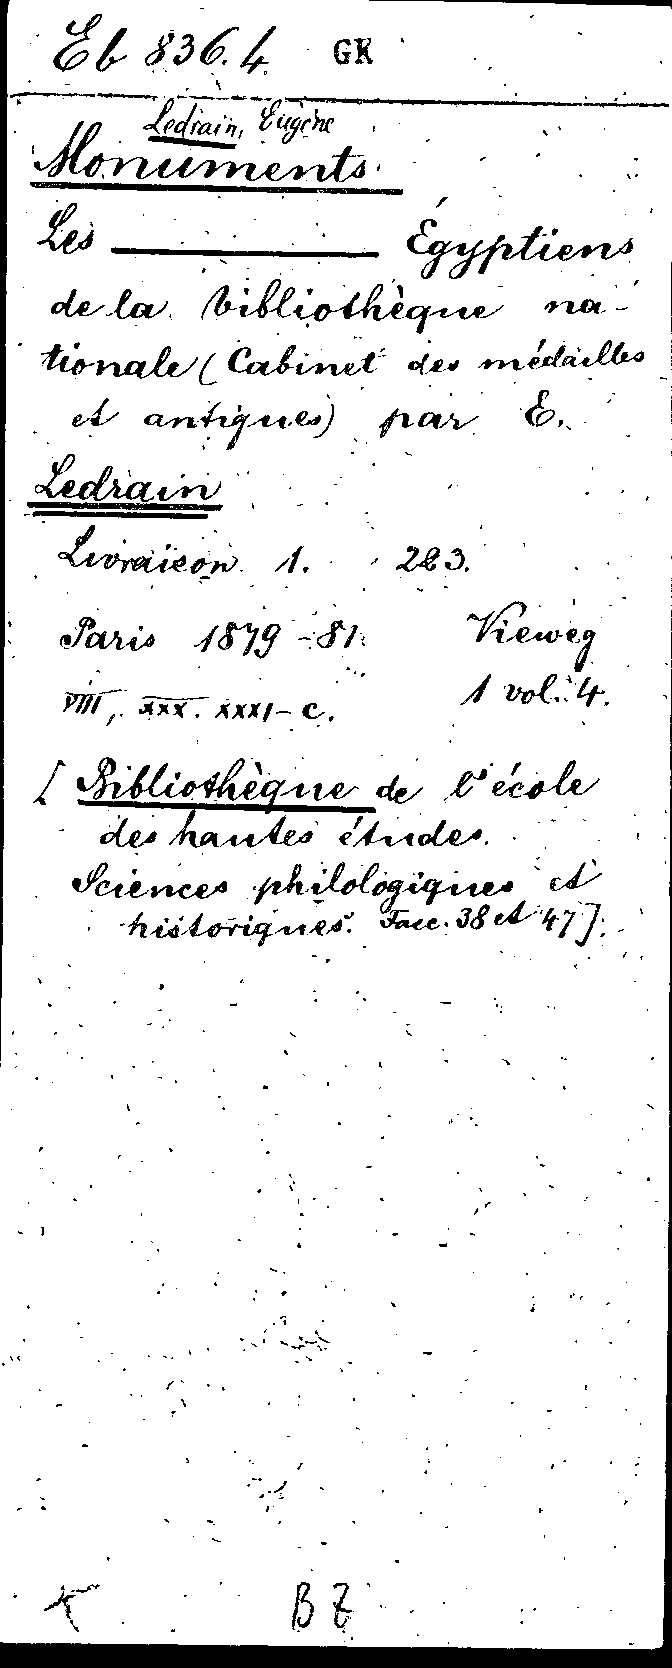 Eb 836.4 GK
Ledrain, Eugène
Monuments.
Les ——— Égyptiens
de la bibliothèque na-
tionale (Cabinet des médailles
et antiques) par E.
Ledrain
Livraison 1. 2&3.
Paris 1879-81. Vieweg
VIII, XXX. XXXI-C. 1 vol. 4.
[Bibliothèque de l'école
des hautes études.
Sciences philologiques et
historiques. Fasc. 38 et 47].
BZ